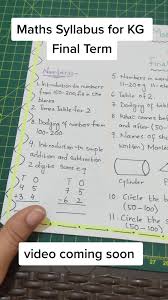 Maths Syllabus for KG
Final Term
Numbers:-
1. Introduction to numbers
from 100-200, fill in the
blanks
2. Times Table for 2
3. Dodging of number from
100-200
4. Introduction to simple
addition and Subtraction
2 digits Sums eg
T O T O
4 5 7 5
+3 4 - 6 2
5. Number in words
11-20
6. Table of 2
7. Dodging of tables
8. What comes before
and after
(50-100)
Cylinder
10. Circle the b
(50-100)
11. Circle the
(50-100)
video coming soon